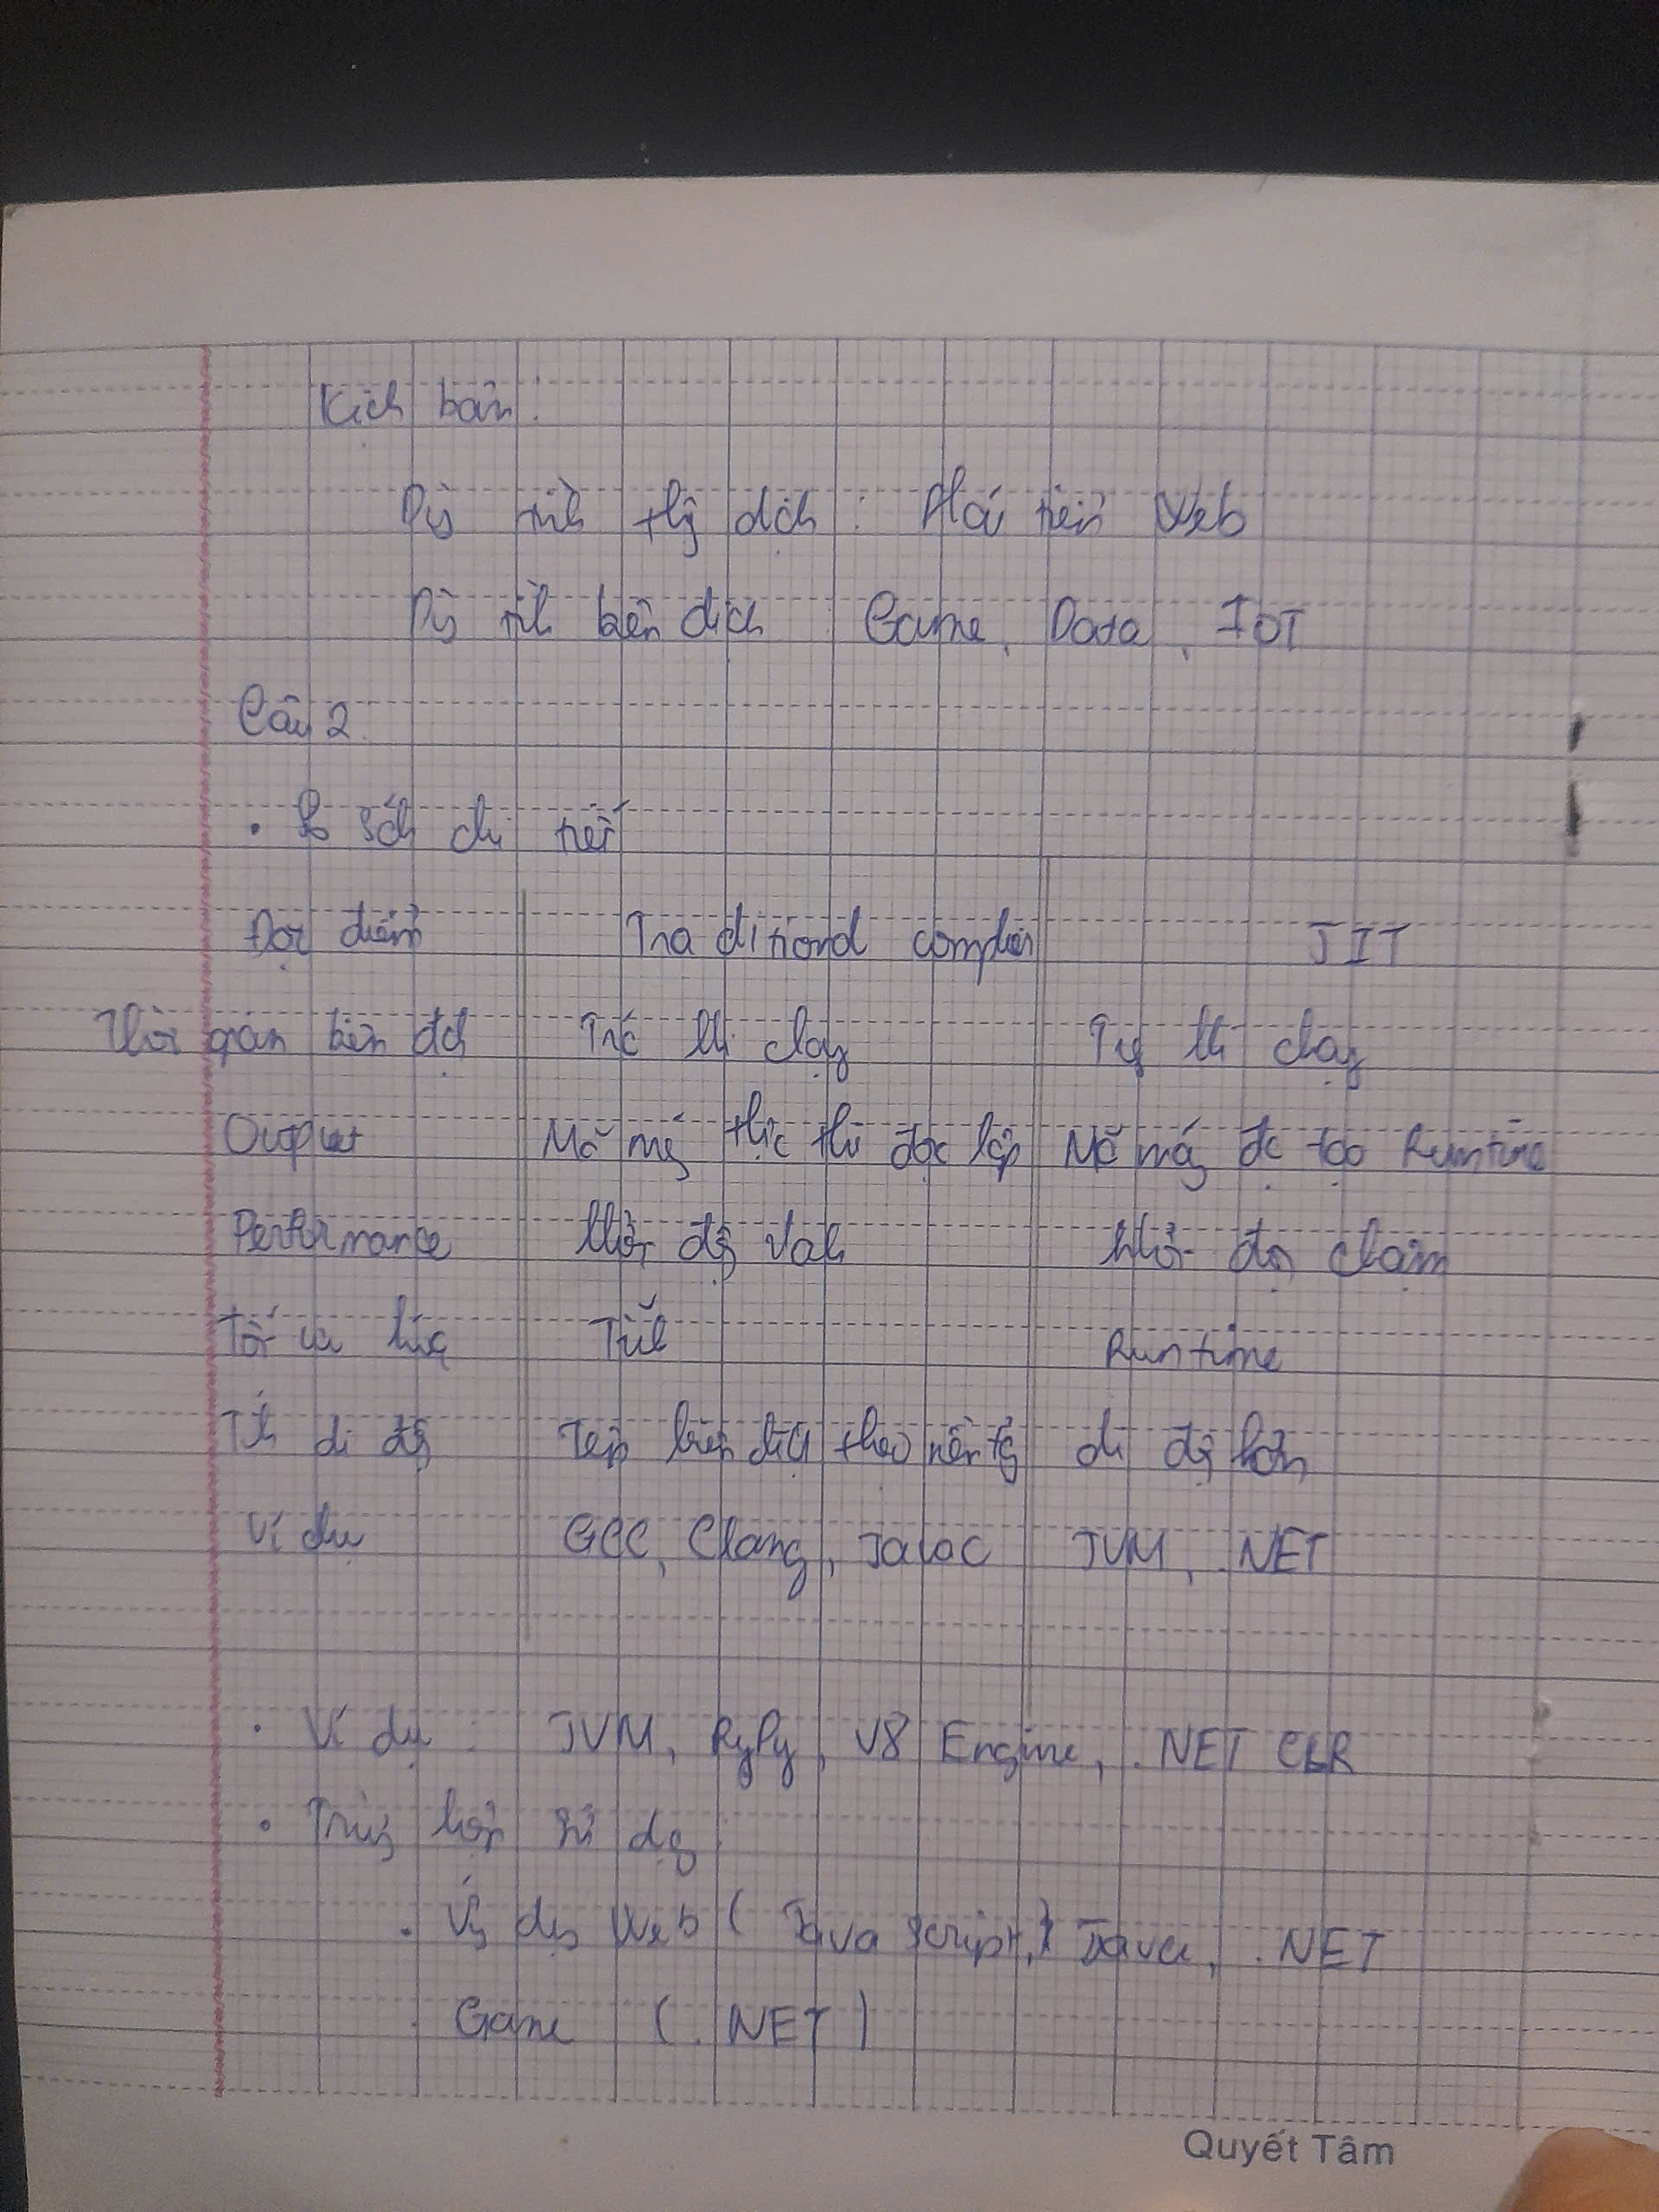 Kịch bản:
thg dịch: Web
biên dịch: Game, Data, IOT
Câu 2.
• So sánh chi tiết
Đặc điểm Traditional compiler JIT
Thời gian biên dịch Trc khi chạy khi chạy
Output Mã máy thực thi độc lập Mã máy đc tạo Runtime
Performance Khởi độg nhanh Khởi độg chậm
Tối ưu lúc Tĩnh Runtime
Tính di độg biên dịch theo nền tảg di độg lớn
Ví dụ GCC, Clang, Javac JVM, .NET
• Ví dụ: JVM, PyPy, V8 Engine, .NET CLR
• Trường hợp sử dụng
• Ứg dụg Web ( Java Script, ) Java, .NET
. Game ( .NET )
Quyết Tâm